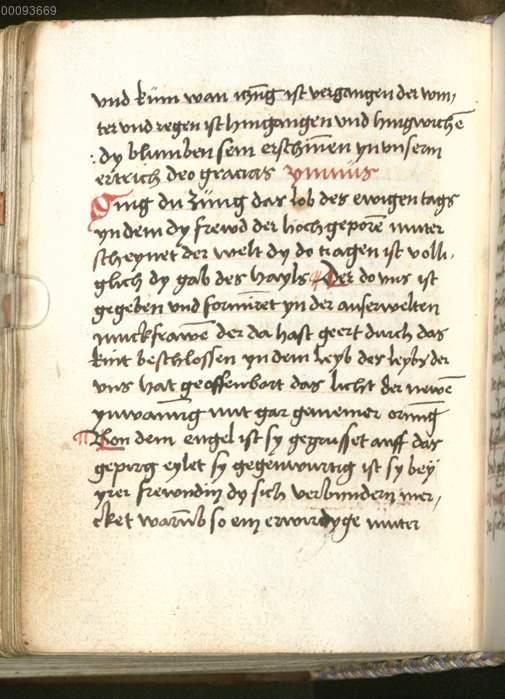 00093669
vnd küm wan yczūg ist vergangen der win,
ter vnd regen ist hingangen vnd hingwichē
: dy blumben sein erschinen yn vnserm
ertrich deo gracias ymnus
Sing du züng das lob des ewigen tags
yn dem dy frewd der hochgeporē muter
scheynet der welt dy do tragen ist volli,
glich dy gab des hayls Der do vns ist
gegeben vnd formiret yn der auserwelten
iunckfrawē der da hast geert durch das
kint beschlossen yn dem leyb des leybs der
vns hat geoffenbart das licht der newē
ynwanūg mit gar gemeiner ornūg
Von dem engel ist sy gegrusset auff das
gepirg eylet sy gegenwurtig ist sy bey
yrer frewndin dy sich verbundern mer,
cket warūb so ein erwirdyge muter